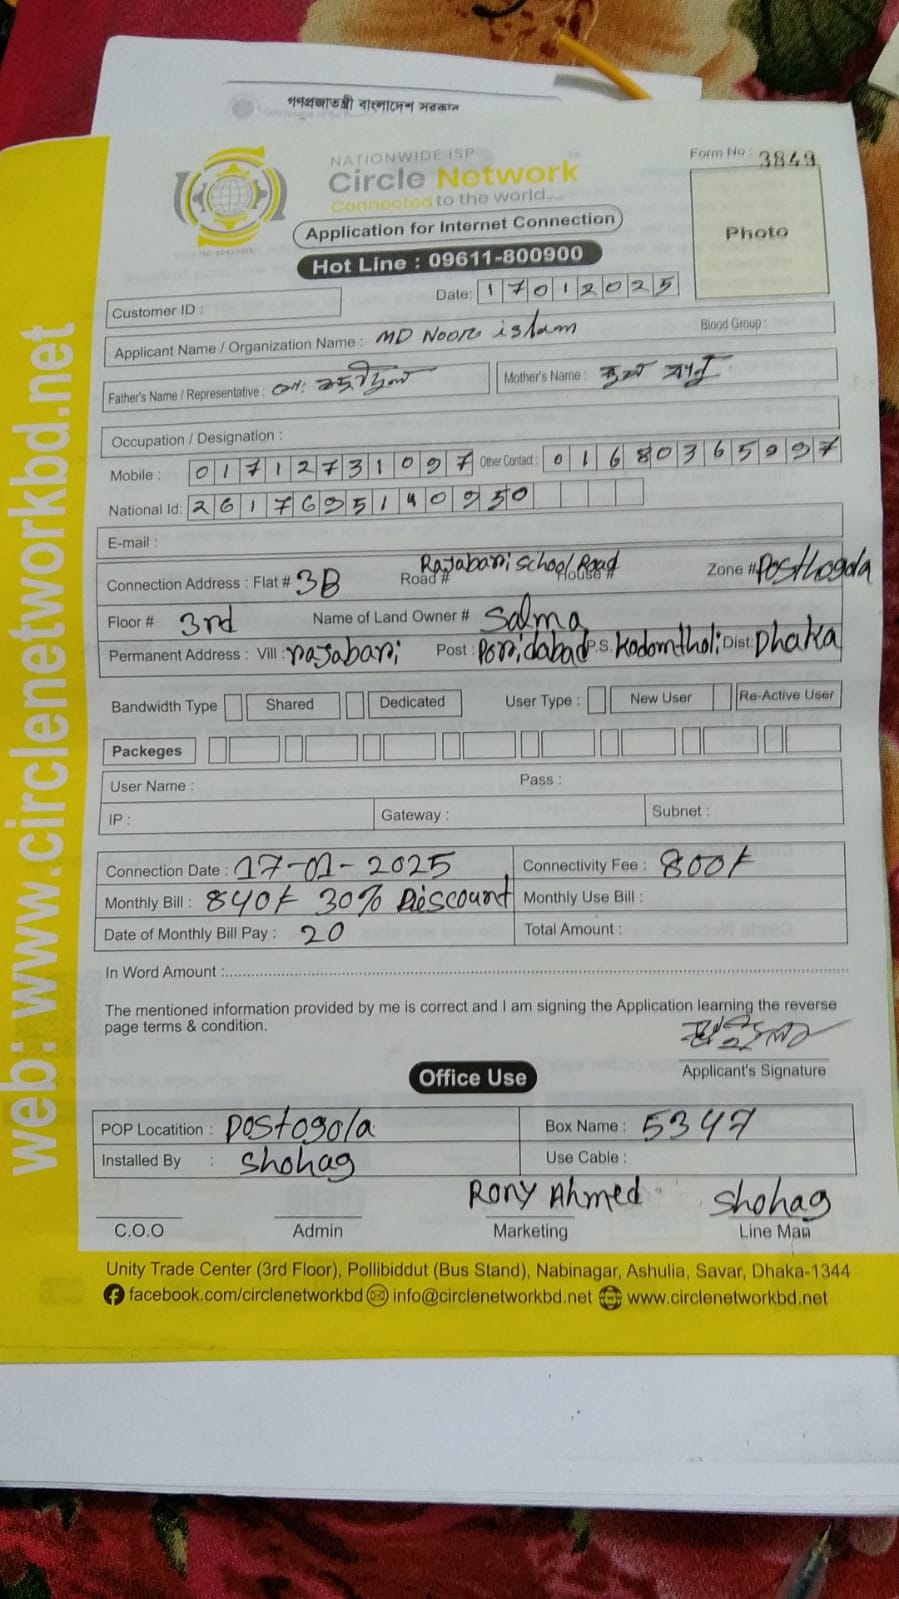 গণপ্রজাতন্ত্রী বাংলাদেশ সরকার
NATIONWIDE ISP
Circle Network
Connected to the world....
Form No : 3849
Photo
Application for Internet Connection
Hot Line : 09611-800900
Date: 17012025
Customer ID :
Applicant Name / Organization Name : MD Nooro islam
Blood Group :
Father's Name / Representative : মো:
Mother's Name :
Occupation / Designation :
Mobile : 01712731097 Other Contact : 01680365997
National Id: 2617695140950
E-mail :
Connection Address : Flat # 3B Road # Rajabari School Road House # Zone # Posthogola
Floor # 3rd Name of Land Owner # Salma
Permanent Address : Vill : rajabari Post : Poridabad P.S. Kodomtholi Dist: Dhaka
Bandwidth Type Shared Dedicated User Type : New User Re-Active User
Packeges
User Name : Pass :
IP : Gateway : Subnet :
Connection Date : 17-01-2025 Connectivity Fee : 800/-
Monthly Bill : 840/- 30% Discount Monthly Use Bill :
Date of Monthly Bill Pay : 20 Total Amount :
In Word Amount :
The mentioned information provided by me is correct and I am signing the Application learning the reverse
page terms & condition.
Applicant's Signature
Office Use
POP Locatition : Postogola Box Name : 5347
Installed By : Shohag Use Cable :
Rony Ahmed Shohag
C.O.O Admin Marketing Line Man
Unity Trade Center (3rd Floor), Pollibiddut (Bus Stand), Nabinagar, Ashulia, Savar, Dhaka-1344
facebook.com/circlenetworkbd info@circlenetworkbd.net www.circlenetworkbd.net
web: www.circlenetworkbd.net